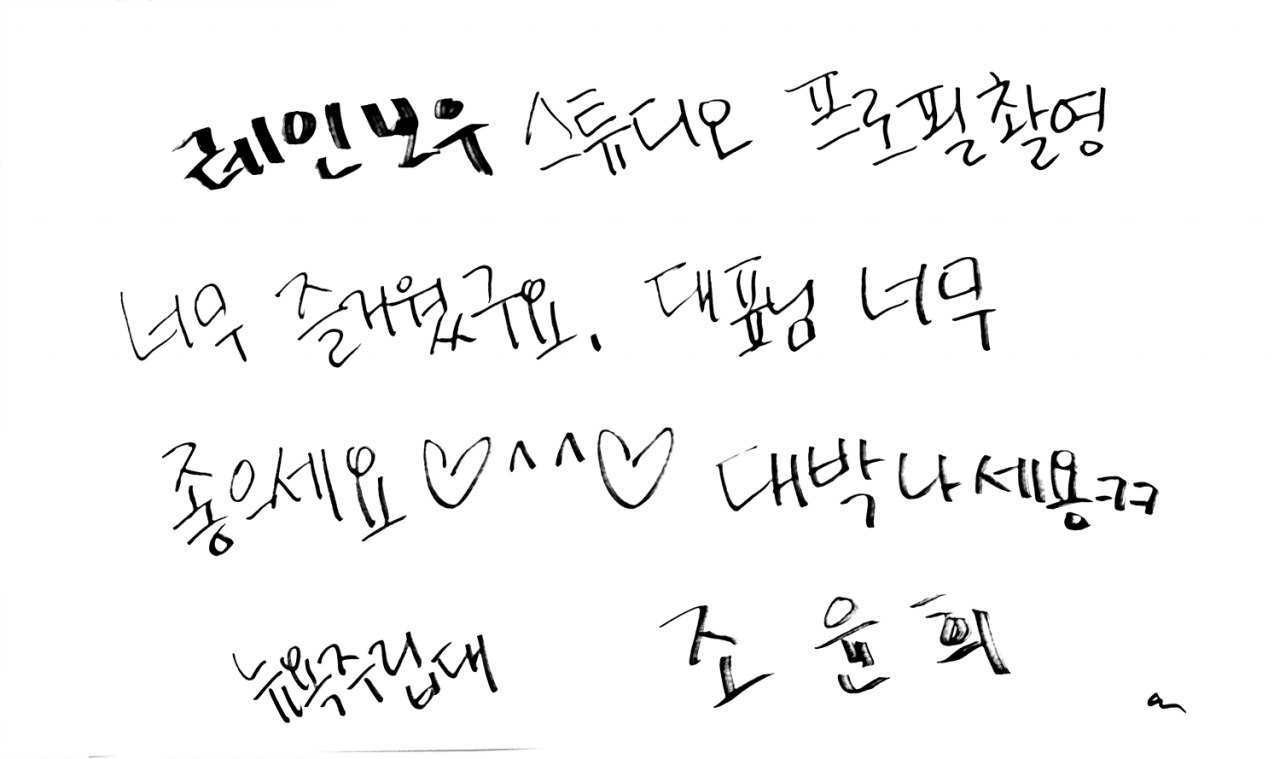 레인보우 스튜디오 프로필촬영
너무 즐거웠구요. 대표님 너무
좋으세요 ♡^^♡ 대박나세용ㅋㅋ
뉴욕주립대 조윤희